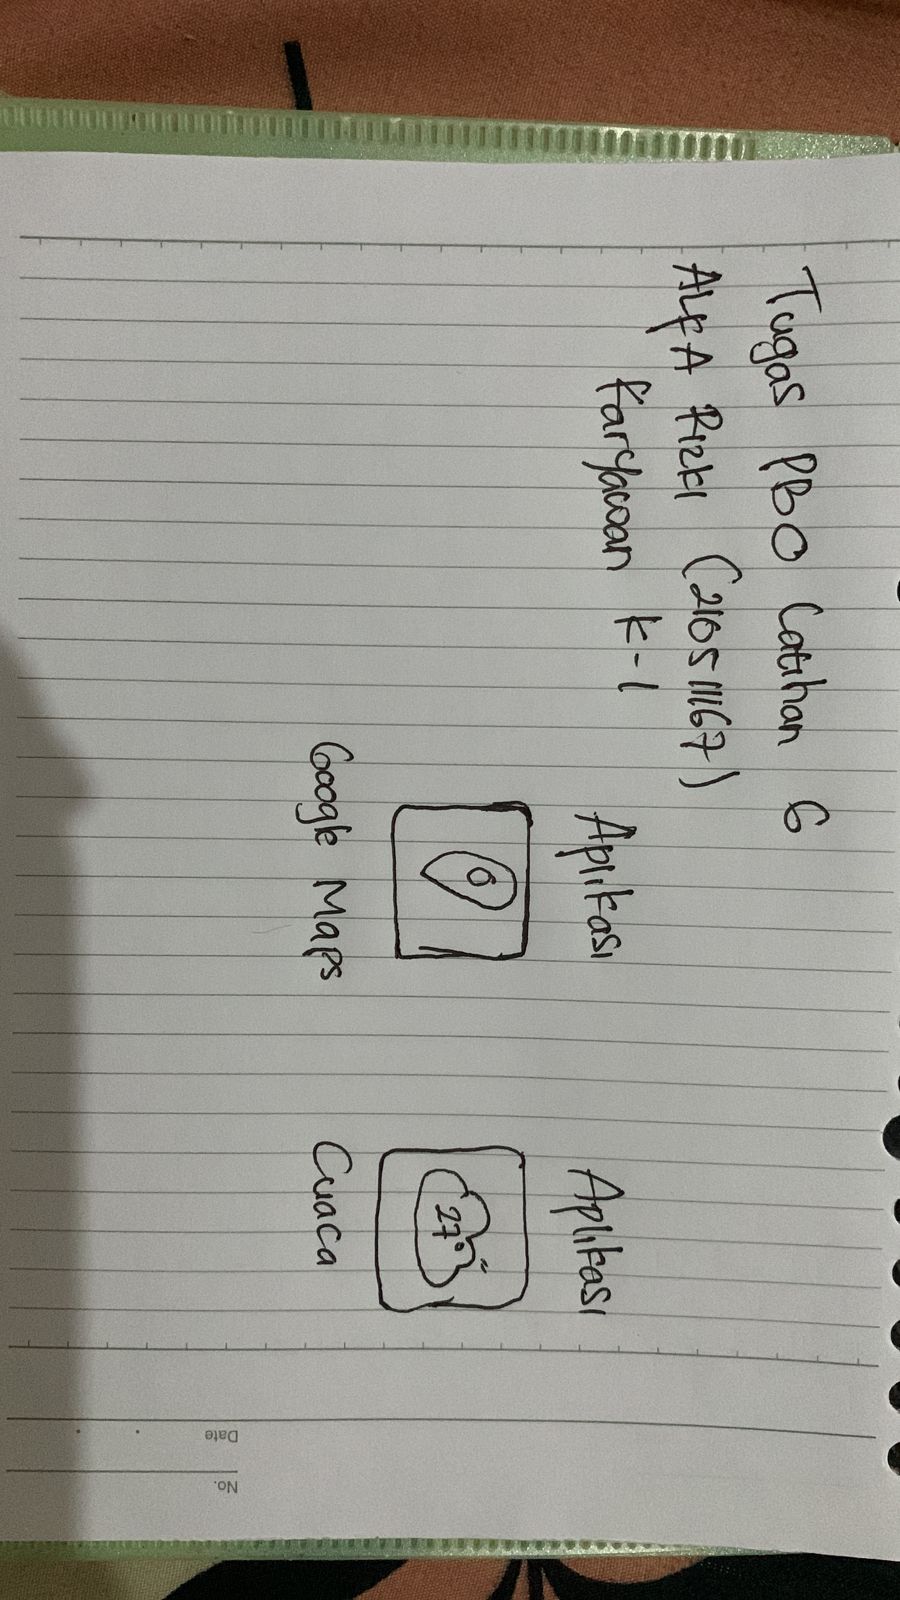 Tugas PBO Latihan 6
ALFA Rizki (210511167)
Karyawan K-1
Aplikasi
Google Maps
Aplikasi
27°
Cuaca
No.
Date